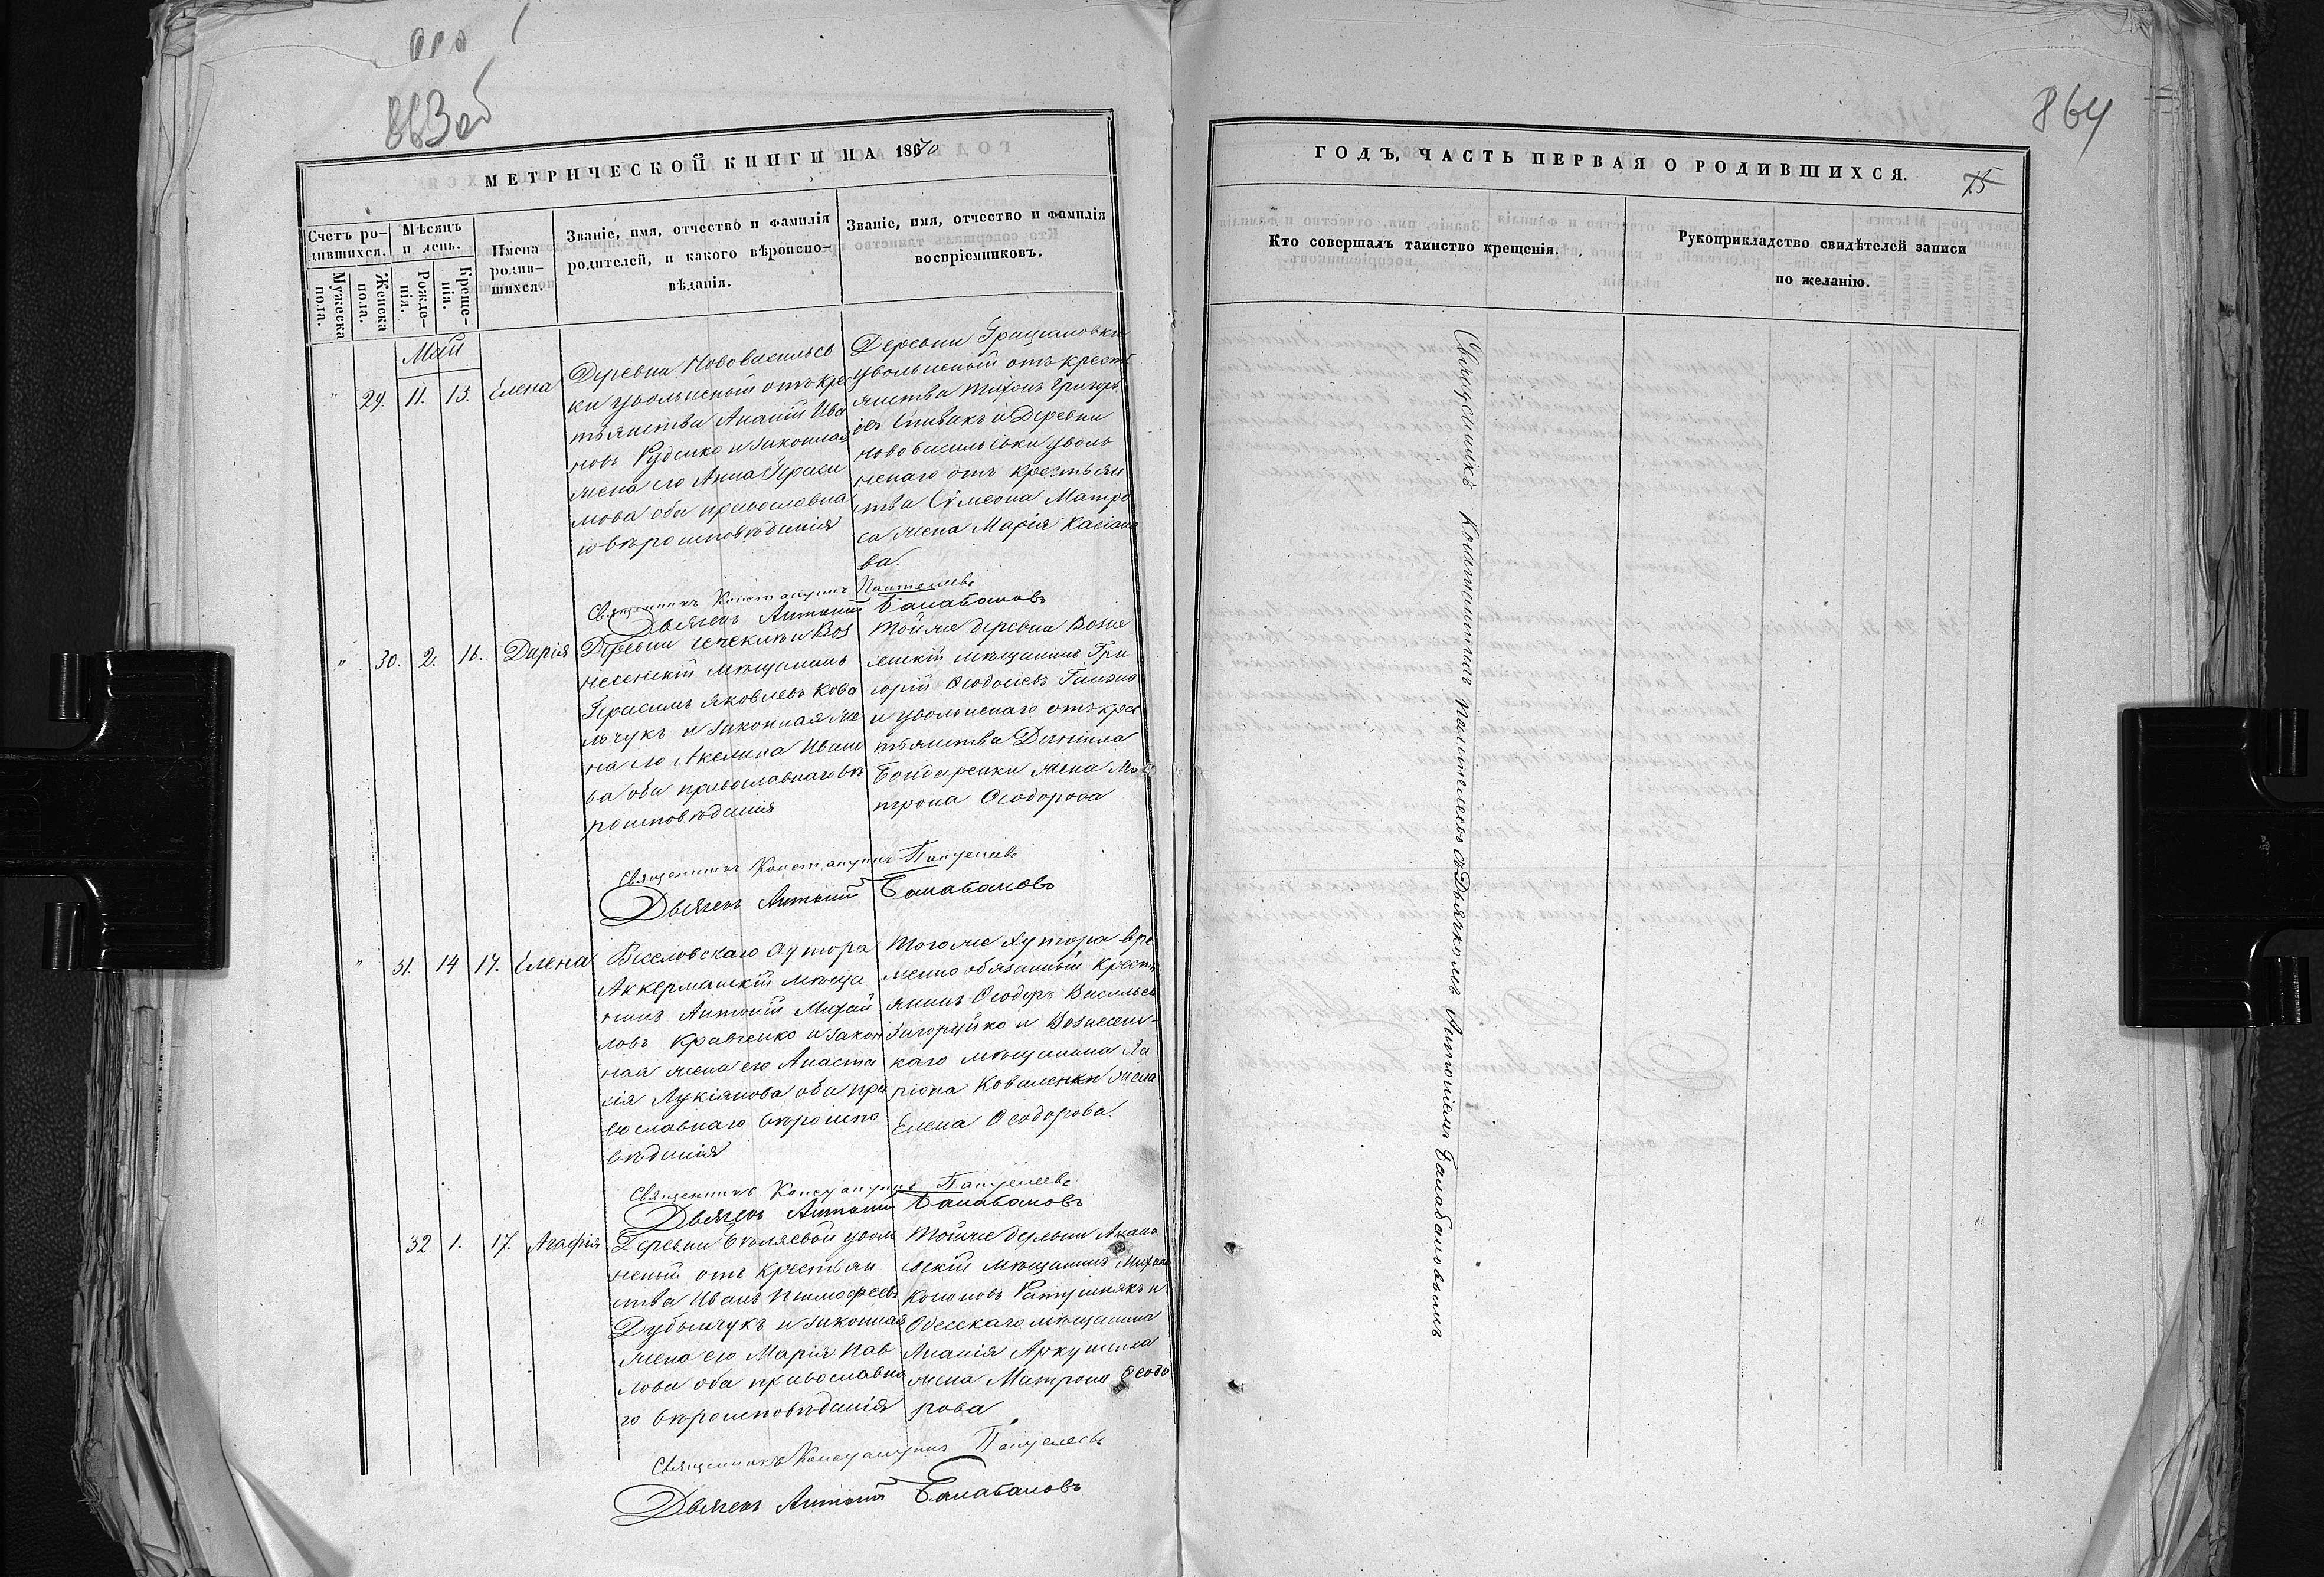 863об
864
МЕТРИЧЕСКОЙ КНИГИ НА 1870
ГОДЪ, ЧАСТЬ ПЕРВАЯ О РОДИВШИХСЯ.
75
Счетъ ро-
дившихся.
Мужеска
пола.
Женска
пола.
Мѣсяцъ
и день.
Рожде-
нія.
Креще-
нія.
Имена
родив-
шихся.
Званіе, имя, отчество и фамилія
родителей, и какого вѣроиспо-
вѣданія.
Званіе, имя, отчество и фамилія
воспріемниковъ.
Кто совершалъ таинство крещенія.
Рукоприкладство свидѣтелей записи
по желанію.
Май
" 29. 11. 13. Елена
Деревни Нововасильев
ки увольненый отъ кре
тьянства Ананій Ива
новъ Руденко и законная
жена его Анна Гераси
мова оба православна
го вѣроисповѣданія
Деревни Граціановки
увольненый отъ кресть
янства Тихонъ Григорь
евъ Спивакъ и Деревни
Нововасильевки уволь
ненаго отъ крестьян
ства Сѵмеона Матро
са жена Марія Касіано
ва.
Священникъ Константинъ Пантелеевъ
Дьячекъ Антоній Балабановъ
" 30. 2. 16. Дарія
Деревни Чечеклии Воз
несенскій мѣщанинъ
Герасимъ Яковлевъ Кова
льчукъ и законная же
на его Акелина Ивано
ва оба православнаго вѣ
роисповѣданія
Той же деревни Возне
сенскій мѣщанинъ Гри
горій Ѳеодосіевъ
и увольненаго отъ крес
тьянства Даніила
Бондаренки жена Ма
трона Ѳеодорова
Священникъ Константинъ Пантелеевъ
Дьячекъ Антоній Балабановъ
" 31. 14 17. Елена
Веселовскаго Хутора
Аккерманскій мѣща
нинъ Антоній Михай
ловъ Кравченко и закон
ная жена его Анаста
сія Лукіянова оба пра
вославнаго вѣроиспо
вѣданія
Того же Хутора Вре
менно обязанный Кресть
янинъ Ѳеодоръ Васильев
Загоруйко и Вознесенс-
каго мѣщанина Ла
ріона Коваленки жена
Елена Ѳеодорова.
Священникъ Константинъ Пантелеевъ
Дьячекъ Антоній Балабановъ
32 1. 17. Агафія
Деревни уволь
неный отъ крестьян
ства Иванъ Тимофеевъ
Дубынчукъ и законная
жена его Марія Пав
лова оба православна
го вѣроисповѣданія
Той же деревни Анань
евскій мѣщанинъ Михаи
Кононовъ Ратушнякъ и
Одесскаго мѣщанина
Ананія Аркушиха
жена Матрона Ѳеодо
рова
Священникъ Константинъ Пантелеевъ
Дьячекъ Антоній Балабановъ
Священникъ Константинъ Пантелеевъ съ Дьячкомъ Антоніемъ Балабановымъ